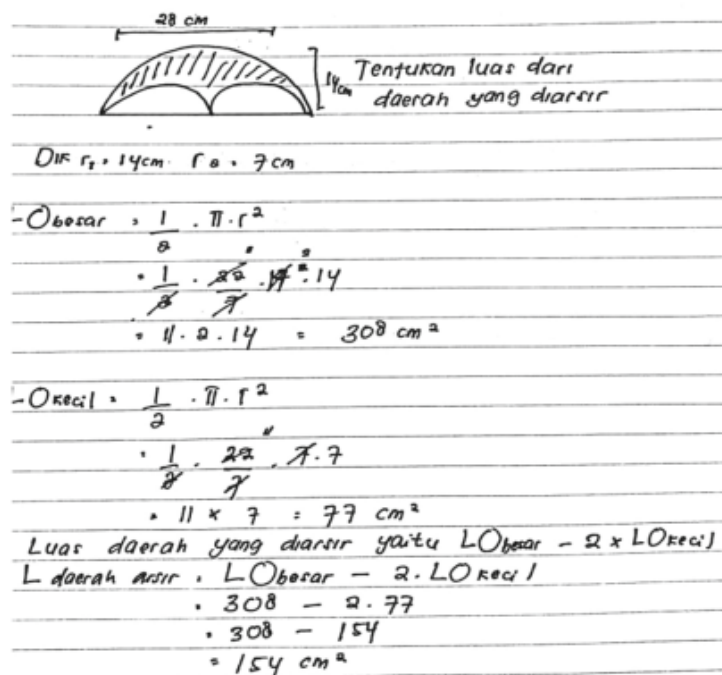 28 cm
14cm
Tentukan luas dari
daerah yang diarsir
Dik r₁ = 14cm r₂ = 7 cm
- O besar = 1/2 . π . r²
= 1/2 . 22/7 . 14 . 14
= 11 . 2 . 14 = 308 cm²
- O kecil = 1/2 . π . r²
= 1/2 . 22/7 . 7 . 7
= 11 × 7 = 77 cm²
Luas daerah yang diarsir yaitu LO besar - 2 x LO kecil
L daerah arsir = LO besar - 2 . LO kecil
= 308 - 2 . 77
= 308 - 154
= 154 cm²